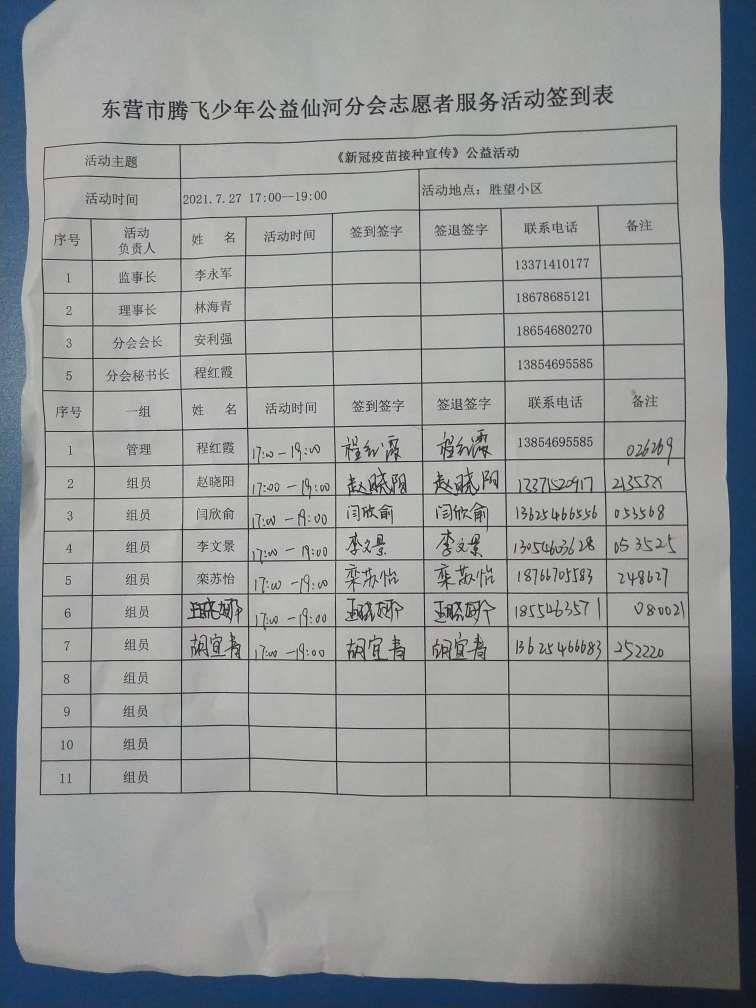 东营市腾飞少年公益仙河分会志愿者服务活动签到表
活动主题 《新冠疫苗接种宣传》公益活动
活动时间 2021.7.27 17:00--19:00 活动地点：胜望小区
序号 活动负责人 姓 名 活动时间 签到签字 签退签字 联系电话 备注
1 监事长 李永军 13371410177
2 理事长 林海青 18678685121
3 分会会长 安利强 18654680270
5 分会秘书长 程红霞 13854695585
序号 一组 姓 名 活动时间 签到签字 签退签字 联系电话 备注
1 管理 程红霞 17:00-19:00 程红霞 程红霞 13854695585 026269
2 组员 赵晓阳 17:00-19:00 赵晓阳 赵晓阳 13371520917
3 组员 闫欣俞 17:00-19:00 闫欣俞 闫欣俞 13625466556 053568
4 组员 李文景 17:00-19:00 李文景 李文景 13054603628 053525
5 组员 栾苏怡 17:00-19:00 栾苏怡 栾苏怡 18766705583 248627
6 组员 17:00-19:00 1855463571 080021
7 组员 胡宜青 17:00-19:00 胡宜青 胡宜青 13625466683 252220
8 组员
9 组员
10 组员
11 组员